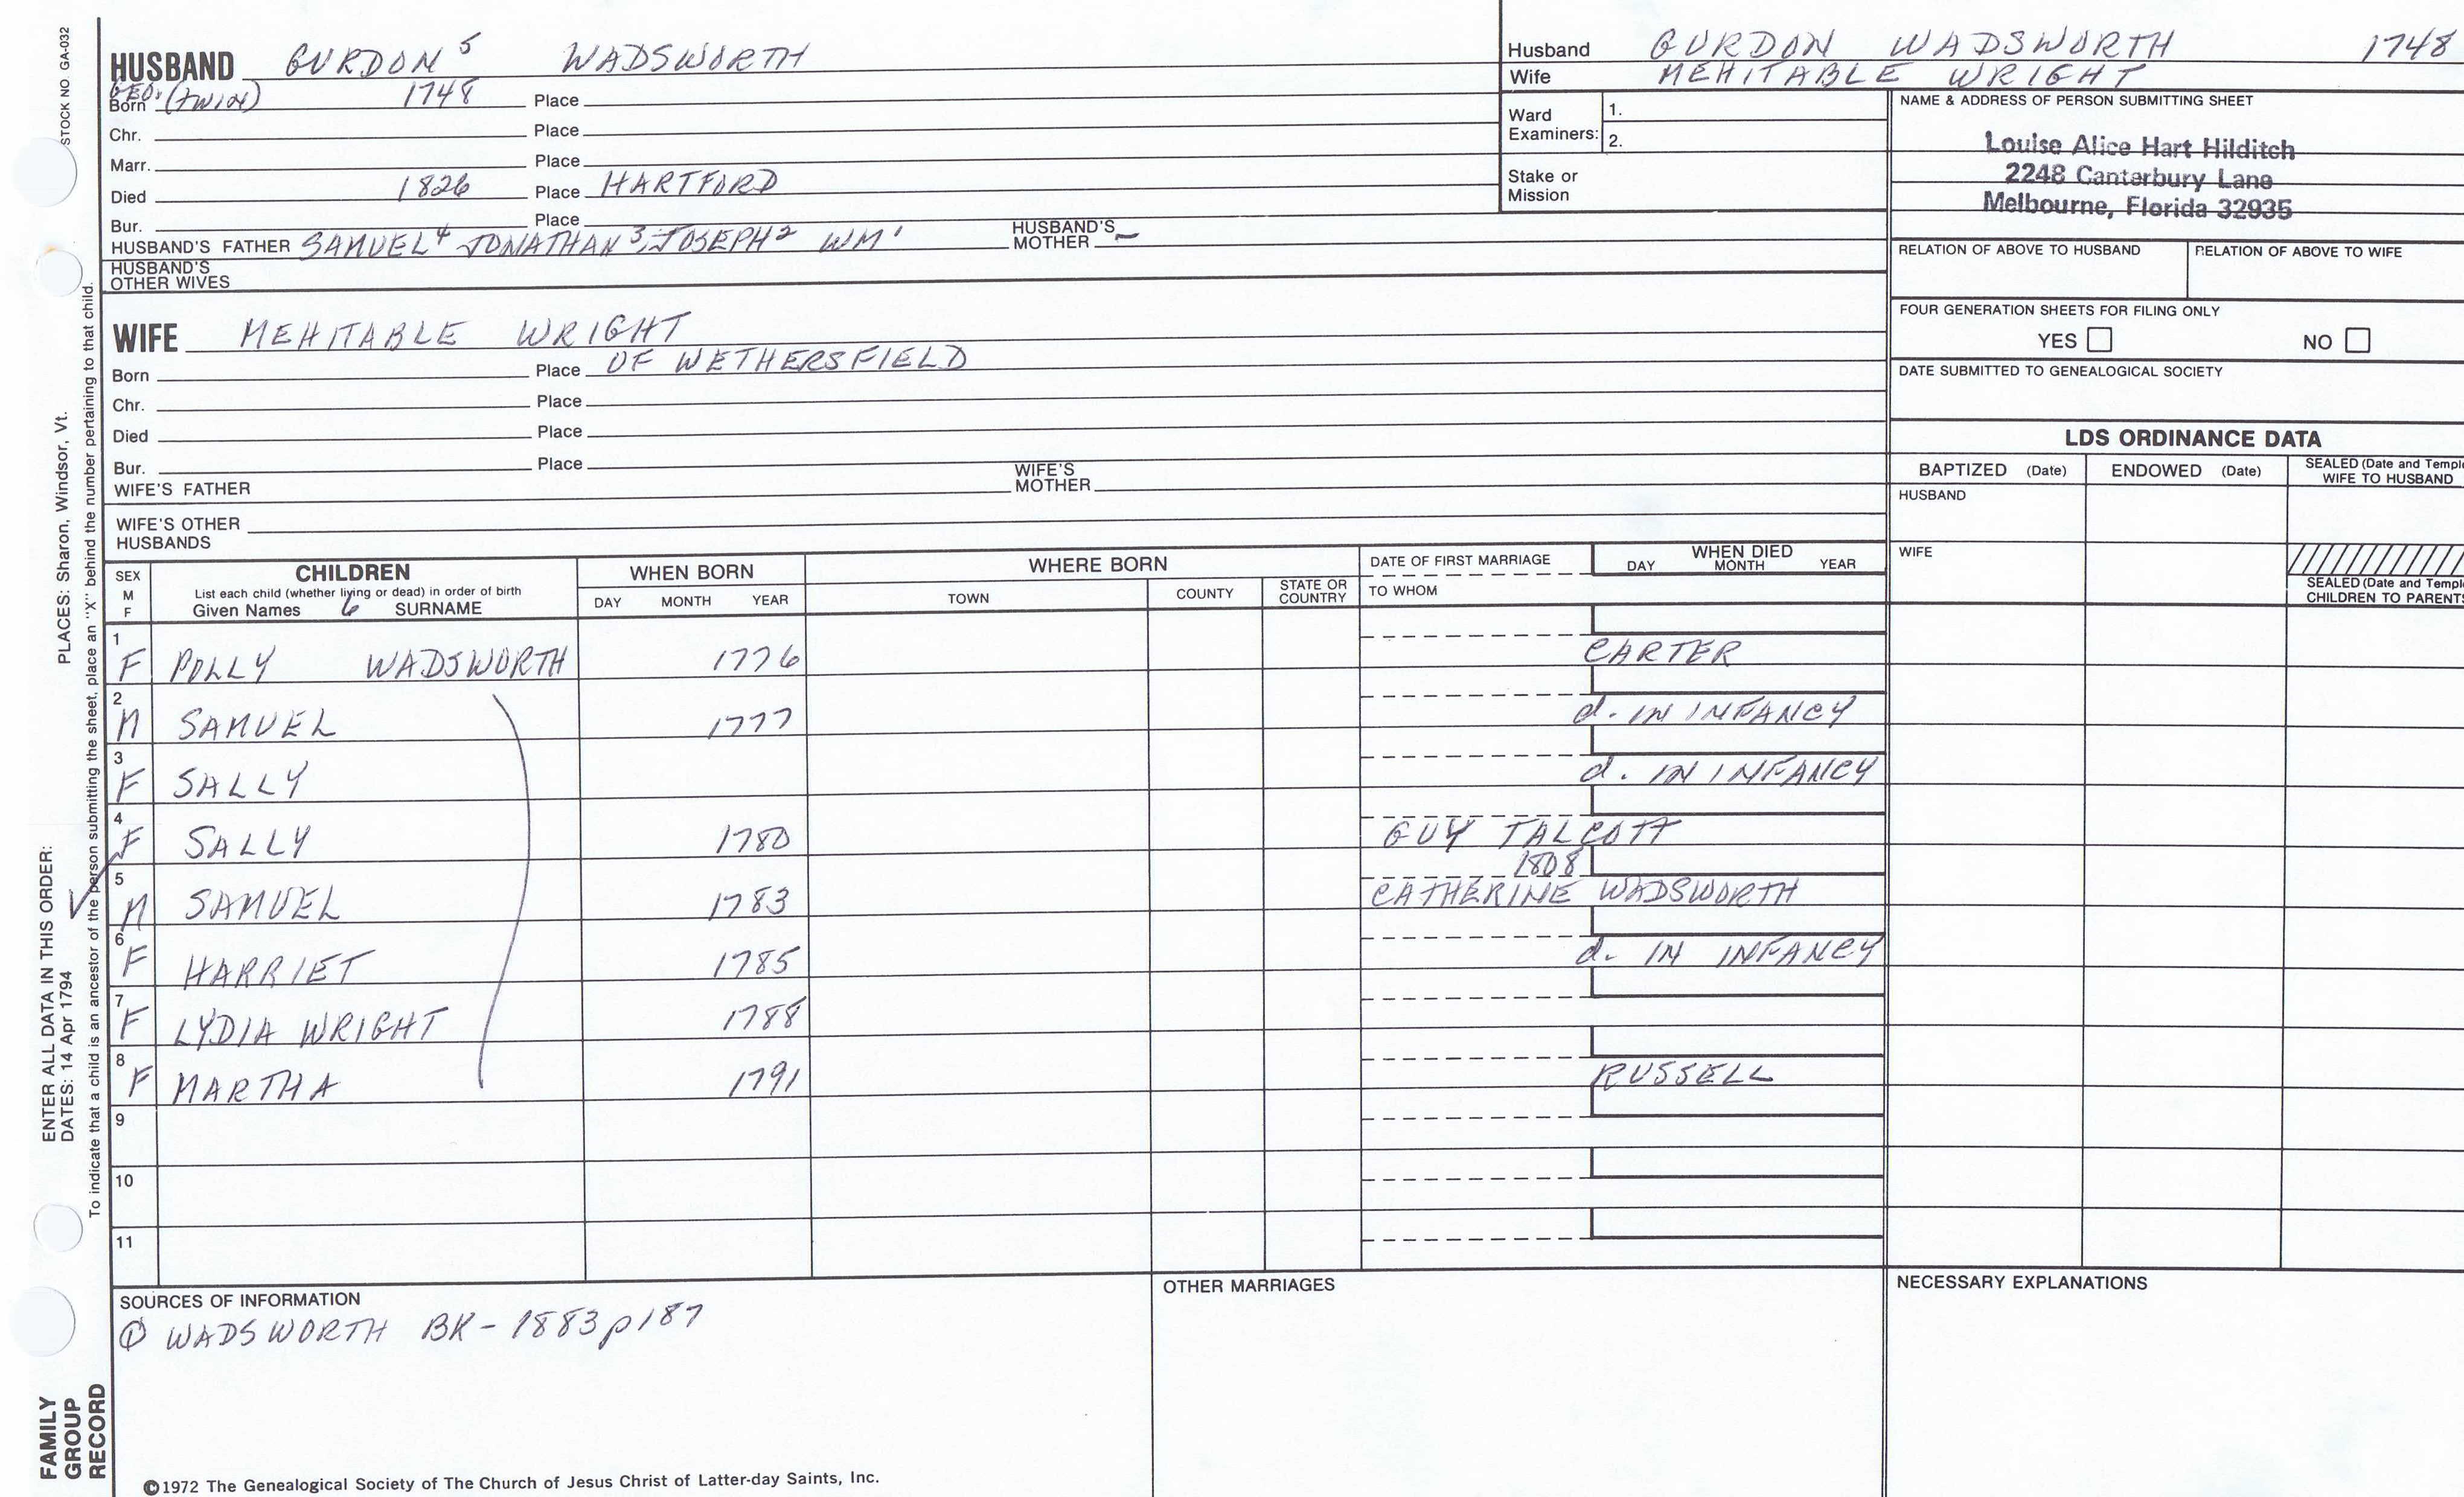 STOCK NO. GA-032
HUSBAND GURDON 5 WADSWORTH
GEO. (TWIN)
Born 1748 Place
Chr. Place
Marr. Place
Died 1826 Place HARTFORD
Bur. Place
HUSBAND'S FATHER SAMUEL 4 JONATHAN 3, JOSEPH 2 WM 1 HUSBAND'S MOTHER –
HUSBAND'S OTHER WIVES
WIFE MEHITABLE WRIGHT
Born Place OF WETHERSFIELD
Chr. Place
Died Place
Bur. Place
WIFE'S FATHER WIFE'S MOTHER
WIFE'S OTHER HUSBANDS
Husband GURDON WADSWORTH 1748
Wife MEHITABLE WRIGHT
Ward Examiners: 1.
2.
Stake or Mission
NAME & ADDRESS OF PERSON SUBMITTING SHEET
Louise Alice Hart Hilditch
2248 Canterbury Lane
Melbourne, Florida 32935
RELATION OF ABOVE TO HUSBAND RELATION OF ABOVE TO WIFE
FOUR GENERATION SHEETS FOR FILING ONLY
YES NO
DATE SUBMITTED TO GENEALOGICAL SOCIETY
LDS ORDINANCE DATA
BAPTIZED (Date) ENDOWED (Date) SEALED (Date and Temple
WIFE TO HUSBAND
HUSBAND
WIFE
SEALED (Date and Temple
CHILDREN TO PARENTS
SEX
M
F
CHILDREN
List each child (whether living or dead) in order of birth
Given Names 6 SURNAME
WHEN BORN
DAY MONTH YEAR
WHERE BORN
TOWN COUNTY STATE OR COUNTRY
DATE OF FIRST MARRIAGE
TO WHOM
WHEN DIED
DAY MONTH YEAR
1 F POLLY WADSWORTH 1776 CARTER
2 M SAMUEL 1777 d. IN INFANCY
3 F SALLY d. IN INFANCY
4 F SALLY 1780 GUY TALCOTT
1808
5 M SAMUEL 1783 CATHERINE WADSWORTH
6 F HARRIET 1785 d. IN INFANCY
7 F LYDIA WRIGHT 1788
8 F MARTHA 1791 RUSSELL
9
10
11
SOURCES OF INFORMATION
① WADSWORTH BK – 1883 p 187
OTHER MARRIAGES
NECESSARY EXPLANATIONS
©1972 The Genealogical Society of The Church of Jesus Christ of Latter-day Saints, Inc.
FAMILY
GROUP
RECORD
ENTER ALL DATA IN THIS ORDER:
DATES: 14 Apr 1794 PLACES: Sharon, Windsor, Vt.
To indicate that a child is an ancestor of the person submitting the sheet, place an "X" behind the number pertaining to that child.